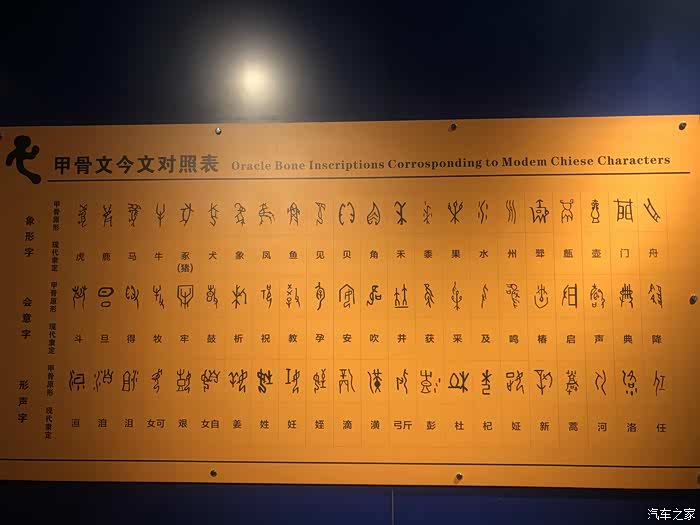 甲骨文今文对照表 Oracle Bone Inscriptions Corrosponding to Modem Chiese Characters
象形字
甲骨原形 现代隶定
虎 鹿 马 牛 豕(猪) 犬 象 凤 鱼 见 贝 角 禾 黍 果 水 州 甑 壶 门 舟
会意字
甲骨原形 现代隶定
斗 旦 得 牧 牢 鼓 析 祝 教 孕 安 吹 并 获 采 及 鸣 椿 启 声 典 降
形声字
甲骨原形 现代隶定
洹 洎 沮 女可 艰 女自 姜 姓 妊 娥 滴 潢 弓斤 彭 杜 杞 延 新 蒿 河 洛 任
汽车之家